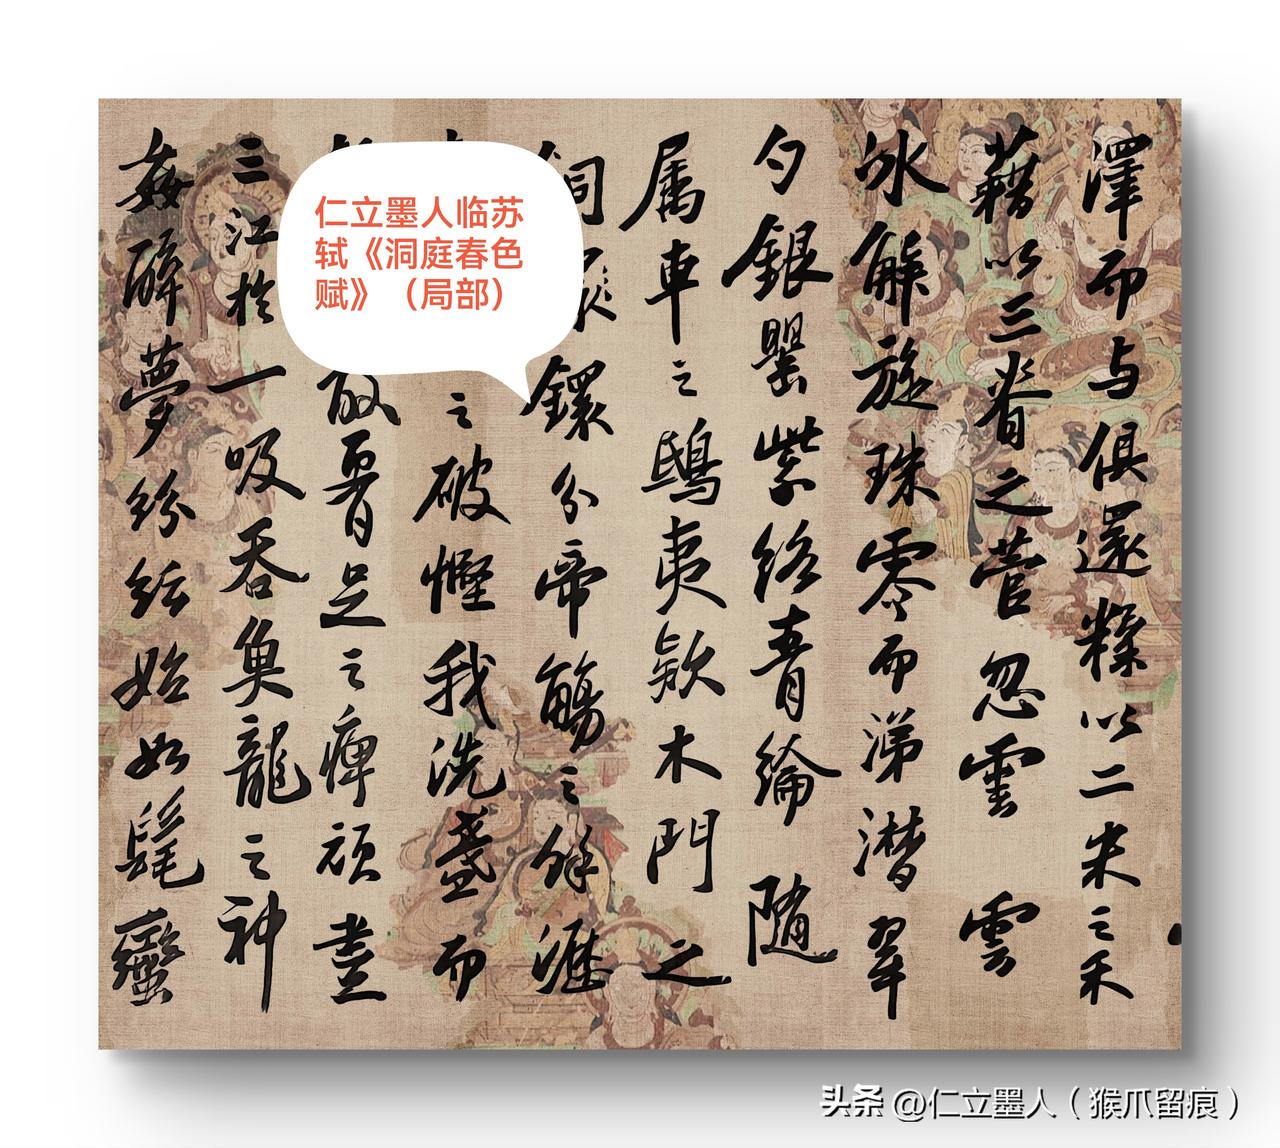 澤而与俱還糅以二米之禾
藉以三脊之菅忽雲雲
冰解旋珠零而涕潸翠
勺銀罌紫絡青綸隨
属車之鴟夷欵木門之
銅鐶分帝觴之餘瀝
之破慳我洗盞而
散腰足之痺頑盡
三江於一吸吞魚龍之神
姦醉夢紛紜始如髦蠻
仁立墨人临苏
轼《洞庭春色
赋》（局部）
头条 @仁立墨人（猴爪留痕）